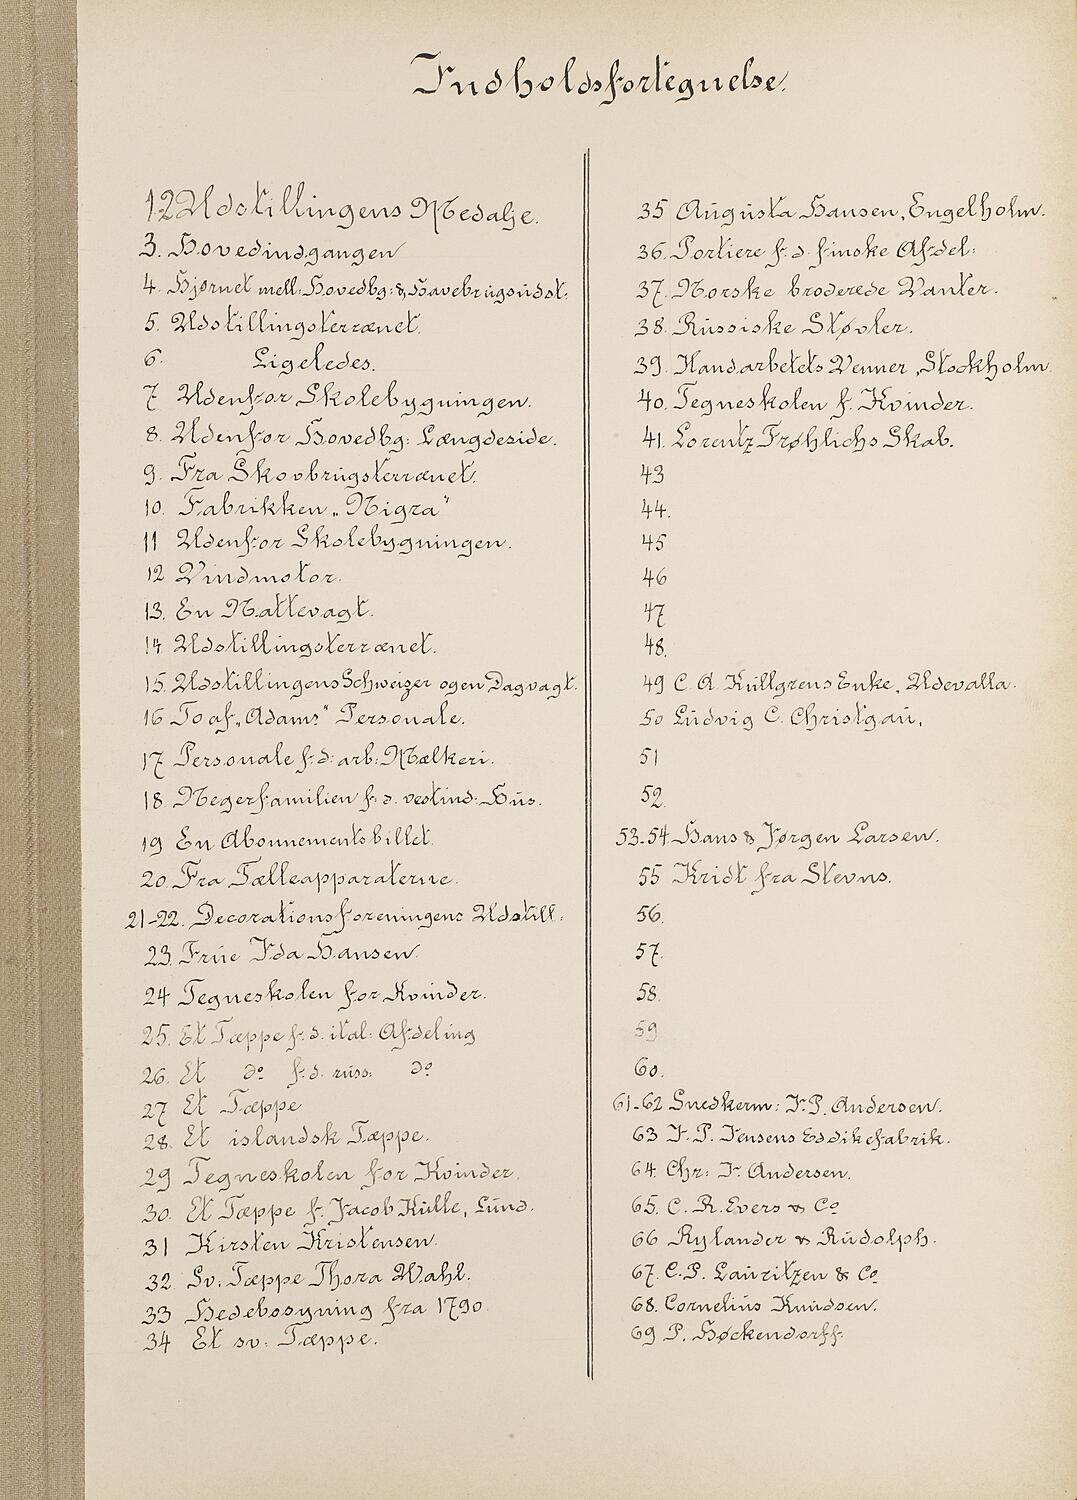 Indholdsfortegnelse.
1.2 Udstillingens Medalje.
3. Hovedindgangen
4. Hjørnet mell: Hovedbg: & Havebrugsudst.
5. Udstillingsterrænet.
6. Ligeledes.
7 Udenfor Skolebygningen.
8. Udenfor Hovedbg: Længdeside.
9. Fra Skovbrugsterrænet.
10. Fabrikken „Nigra"
11 Udenfor Skolebygningen.
12 Vindmotor.
13. En Nattevagt.
14. Udstillingsterrænet.
15. Udstillingens Schweizer og en Dagvagt.
16 To af „Adams" Personale.
17 Personale f. d: arb: Mælkeri.
18. Negerfamilien f. d. vestind: Hus.
19 En Abonnementsbillet.
20. Fra Tælleapparaterne.
21-22. Decorationsforeningens Udstill:
23. Frue Ida Hansen.
24 Tegneskolen for Kvinder.
25. Et Tæppe f. d. ital: Afdeling
26. Et do f. d. russ: do
27 Et Tæppe
28. Et islandsk Tæppe.
29 Tegneskolen for Kvinder.
30. Et Tæppe f. Jacob Kulle, Lund.
31 Kirsten Kristensen.
32 Sv. Tæppe Thora Wahl.
33 Hedebosyning fra 1790.
34 Et sv: Tæppe.
35 Augusta Hansen, Engelholm.
36. Portiere f. d. finske Afdel:
37. Norske broderede Vanter.
38. Russiske Støvler.
39. Handarbetets Venner, Stockholm.
40. Tegneskolen f. Kvinder.
41. Lorentz Frøhlichs Skab.
43
44.
45
46
47
48.
49 C. A. Kullgrens Enke, Udevalla.
50 Ludvig C. Christgau.
51
52.
53.-54. Hans & Jørgen Larsen.
55 Kridt fra Stevns.
56.
57.
58.
59
60.
61-62 Snedkerm: J. P. Andersen.
63 J. P. Jensens Eddikefabrik.
64. Chr: J. Andersen.
65. C. R. Evers & Co
66 Rylander & Rudolph.
67. C. P. Lauritzen & Co
68. Cornelius Knudsen.
69 P. Bøckendorff.